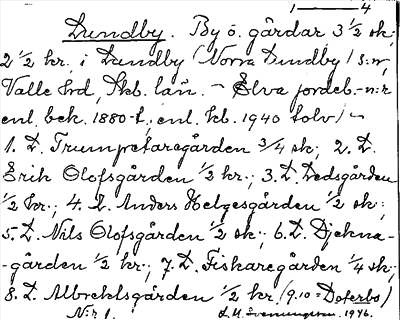 1 — 4
Lundby. By o. gårdar 3 1/2 sk;
2 1/2 kr. i Lundby (Norra Lundby) s:n,
Valle hrd, Skb. län. — Elva jordeb.-n:r
enl. bek. 1880-t; enl. kb. 1940 tolv) —
1. L. Trumpetaregården 3/4 sk; 2. L.
Erik Olofsgården 1/2 kr.; 3. L. Dedsgården
1/2 kr.; 4. L. Anders Helgesgården 1/2 sk;
5. L. Nils Olofsgården 1/2 sk; 6. L. Djekna-
-gården 1/2 kr.; 7. L. Fiskaregården 1/4 sk;
8. L. Albrektsgården 1/2 kr. (9.10 = Doterbo)
N:r 1. L. H. Svenungsson. 1946.